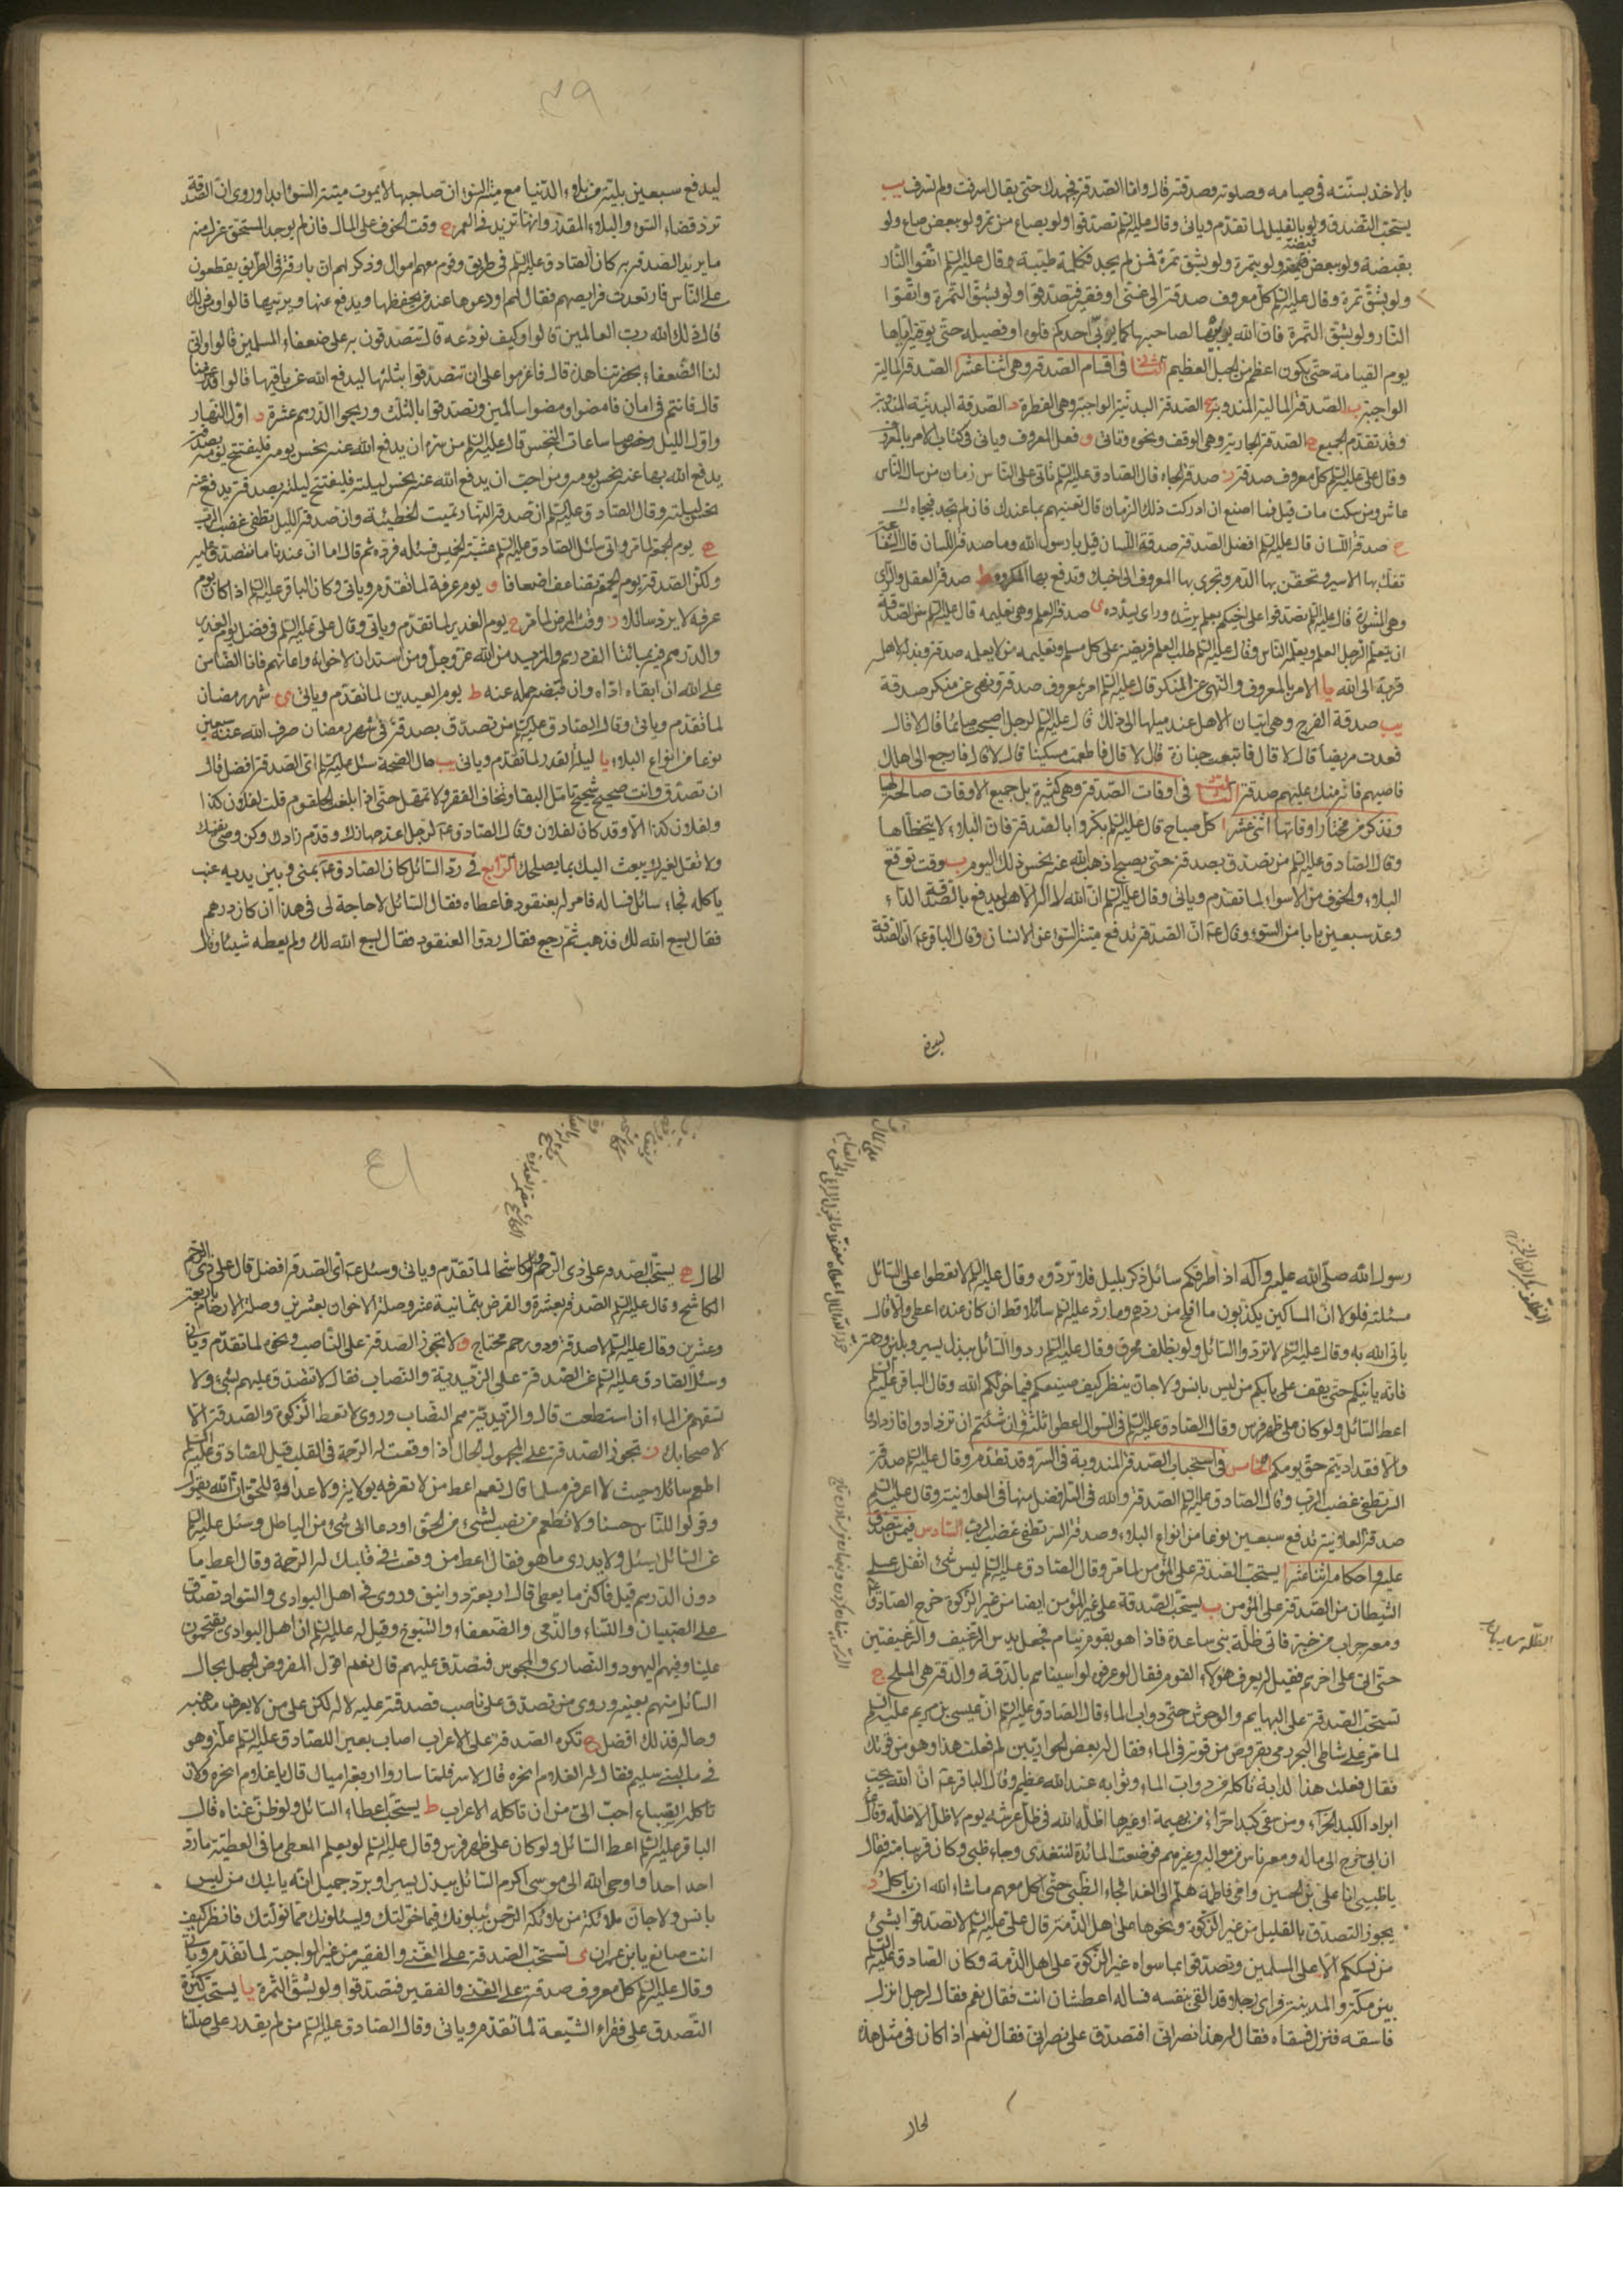 بالاخذ بسنّته فى صيامه وصلوته وصدقته قال واما الصّدقة فجهدك حتّى يقال اسرفت ولم تسرف يب
يستحبّ التصدّق ولو بالقليل لما تقدّم وياتى وقال عليه السلم تصدّقوا ولو بصاع من تمر ولو ببعض صاع ولو
بقبضة ولو ببعض قبضة ولو بتمرة ولو بشق تمرة فمن لم يجد فكلمة طيّبة وقال عليه السلم اتّقوا النّار
ولو بشقّ تمرة وقال عليه السلم كلّ معروف صدقة الى غنى او فقير فتصدقوا ولو بشقّ التمرة واتقوا
النّار ولو بشقّ التمرة فان الله يربّيها لصاحبها كما يربّى احدكم فلوه او فصيله حتّى يوفيه ايّاها
يوم القيامة حتى يكون اعظم من الجبل العظيم الثّانى فى اقسام الصّدقة وهى اثنا عشر ا الصّدقة الماليّة
الواجبة ب الصّدقة الماليّة المندوبة ج الصّدقة البدنيّة الواجبة وهى الفطرة د الصّدقة البدنيّة المندوبة
وقد تقدّم الجميع ه الصّدقة الجارية وهى الوقف ونحوه وتاتى و فعل المعروف وياتى فى كتاب الامر بالمعروف
وقال على عليه السلم كل معروف صدقة ز صدقة الجاه قال الصّادق عليه السلم ياتى على النّاس زمان من سال النّاس
عاش ومن سكت مات قيل فما اصنع ان ادركت ذلك الزمان قال تعينهم بما عندك فان لم تجد فبجاهك
ح صدقة اللّسان قال عليه السلم افضل الصّدقة صدقة اللّسان قيل يا رسول الله وما صدقة اللّسان قال الشفاعة
تفكّ بها الاسير وتحقن بها الدّم وتجرى بها المعروف الى اخيك وتدفع بها المكروه ط صدقة العقل والرّاى
وهى المشورة قال عليه السلم تصدّقوا على اخيكم بعلم يرشده وراى يسدّده ى صدقة العلم وهى تعليمه قال عليه السلم من الصّدقة
ان يتعلّم الرّجل العلم ويعلّمه النّاس وقال عليه السلم طلب العلم فريضة على كل مسلم وتعليمه من لا يعلمه صدقة وبذله لاهله
قربة الى الله يا الامر بالمعروف والنّهى عن المنكر قال عليه السلم امر بمعروف صدقة ونهى عن منكر صدقة
يب صدقة الفرج وهى اتيان الاهل عند ميلها الى ذلك قال عليه السلم لرجل اصبحت صائما قال لا قال
فعدت مريضا قال لا قال فاتبعت جنازة قال لا قال فاطعمت مسكينا قال لا قال فارجع الى اهلك
فاصبهم فانّه منك عليهم صدقة الثّالث فى اوقات الصّدقة وهى كثيرة بل جميع الاوقات صالحة لها
ونذكر من مختار اوقاتها اثنى عشر ا كلّ صباح قال عليه السلم بكّروا بالصّدقة فان البلاء لا يتخطّاها
وقال الصّادق عليه السلم من تصدّق بصدقة حتى يصبح اذهب الله عنه نحس ذلك اليوم ب وقت توقّع
البلاء والخوف من الاسواء لما تقدّم وياتى وقال عليه السلم انّ الله لا اله الا هو ليدفع بالصّدقة الدّاء
وعدّ سبعين بابا من السّوء وقال ع انّ الصّدقة تدفع ميتة السّوء عن الانسان وقال الباقر ع انّ الصّدقة
ليدفع
٣٩
ليدفع سبعين بليّة من بلاء الدّنيا مع ميتة السّوء انّ صاحبها لا يموت ميتة السّوء ابدا وروى انّ الصّدقة
تردّ قضاء السّوء والبلاء المقدّر وانها تزيد فى العمر ج وقت الخوف على المال فان لم يوجد المستحقّ عزل منه
ما يريد الصّدقة به كان الصّادق عليه السلم فى طريق وقوم معهم اموال وذكر لهم انّ بارقة فى الطّريق يقطعون
على النّاس فارتعدت فرايصهم فقال لهم اودعوها عند من يحفظها ويدفع عنها ويربّيها قالوا ومن ذلك
قال ذلك الله ربّ العالمين قالوا وكيف نودعه قال تتصدّقون به على ضعفاء المسلمين قالوا وانّى
لنا الضّعفاء بحضرتنا هذه قال فاعزموا على ان تتصدّقوا بثلثها ليدفع الله عن باقيها قالوا قد عزمنا
قال فانتم فى امان فامضوا ومضوا سالمين وتصدّقوا بالثلث وربحوا الدّرهم عشرة د اوّل النّهار
واوّل اللّيل وخصوصا ساعات النّحس قال عليه السلم من سرّه ان يدفع الله عنه نحس يومه فليفتتح يومه بصدقة
يدفع الله بها عنه نحس يومه ومن احبّ ان يدفع الله عنه نحس ليلته فليفتتح ليلته بصدقة يدفع عنه
نحس ليلته وقال الصّادق عليه السلم انّ صدقة النّهار تميت الخطيئة وانّ صدقة اللّيل تطفئ غضب الرّب
ه يوم الجمعة لما مرّ واتى سائل الصّادق عليه السلم عشيّة الخميس فسئله فردّه ثم قال اما انّ عندنا ما نتصدّق عليه
ولكنّ الصّدقة يوم الجمعة تضاعف اضعافا و يوم عرفة لما تقدّم وياتى وكان الباقر عليه السلم اذا كان يوم
عرفة لا يردّ سائلا ز وقت المرض لما مرّ ح يوم الغدير لما تقدّم وياتى وقال على عليه السلم فى فضل يوم الغدير
والدّرهم فيه بمائتا الف درهم والمزيد من الله عزّ وجلّ ومن استدان لاخوانه واعانهم فانا الضّامن
على الله ان ابقاه ادّاه وان قبضه حمله عنه ط يوم العيدين لما تقدّم وياتى ى شهر رمضان
لما تقدّم وياتى وقال الصّادق عليه السلم من تصدّق بصدقة فى شهر رمضان صرف الله عنه سبعين
نوعا من انواع البلاء يا ليلة القدر لما تقدّم وياتى يب حال الصّحة سئل عليه السلم اى الصّدقة افضل قال
ان تصدّق وانت صحيح شحيح تامل البقا وتخاف الفقر ولا تمهل حتّى اذا بلغت الحلقوم قلت لفلان كذا
ولفلان كذا الا وقد كان لفلان وقال الصّادق ع لرجل اعدّ جهازك وقدّم زادك وكن وصىّ نفسك
ولا تقل لغيرك يبعث اليك بما يصلحك الرّابع فى ردّ السّائل كان الصّادق ع بمنى وبين يديه عنب
ياكله فجاء سائل فساله فامر له بعنقود فاعطاه فقال السّائل لا حاجة لى فى هذا ان كان درهم
فقال يسع الله لك فذهب ثمّ رجع فقال ردّوا العنقود فقال يسع الله لك ولم يعطه شيئا وقال
رسول الله صلّى الله عليه وآله اذا طرقكم سائل ذكر بليل فلا تردّوه وقال عليه السلم لا تقطعوا على السّائل
مسئلته فلولا انّ المساكين يكذبون ما افلح من ردّهم وما ردّ عليه السلم سائلا قط ان كان عنده اعطى والا قال
ياتى الله به وقال عليه السلم لا تردّوا السّائل ولو بظلف محرق وقال عليه السلم ردّوا السّائل ببذل يسير وبلين ورحمة
فانّه ياتيكم حتى يقف على بابكم من ليس بانس ولا جانّ ينظر كيف صنيعكم فيما خولكم الله وقال الباقر عليه السلم
اعط السّائل ولو كان على ظهر فرس وقال الصّادق عليه السلم فى السّؤال اعطوا ثلثة وان شئتم ان تزدادوا فازدادوا
والا فقد ادّيتم حقّ يومكم الخامس فى استحباب الصّدقة المندوبة فى السّر وقد تقدّم وقال عليه السلم صدقة
السّر تطفئ غضب الرّب وقال الصّادق عليه السلم الصّدقة والله فى السّر افضل منها فى العلانية وقال عليه السلم
صدقة العلانية تدفع سبعين نوعا من انواع البلاء وصدقة السّر تطفئ غضب الرّب السّادس فيمن تصدّق
عليه واحكامه اثنا عشر ا يستحبّ الصّدقة على المؤمن لما مرّ وقال الصّادق عليه السلم ليس شئ اثقل على
الشّيطان من الصّدقة على المؤمن ب يستحبّ الصّدقة على غير المؤمن ايضا من غير الزّكوة خرج الصّادق ع
ومعه جراب من خبز فاتى ظلّة بنى ساعدة فاذا هو بقوم نيام فجعل يدس الرّغيف والرّغيفين
حتّى اتى على اخرهم فقيل له يعرف هؤلاء القوم فقال لو عرفوه لواسيناهم بالدّقة والدّقة هى الملح ج
تستحبّ الصّدقة على البهايم والوحوش حتى دواب الماء قال الصّادق عليه السلم انّ عيسى بن مريم عليه السلم
لما مرّ على شاطئ البحر رمى بقرص من قوته فى الماء فقال له بعض الحواريين لم فعلت هذا وهو من قوتك
فقال فعلت هذا لدابة تاكله من دواب الماء وثوابه عند الله عظيم وقال الباقر ع انّ الله يحبّ
ابراد الكبد الحرّاء ومن سقى كبدا حرّاء من بهيمة او غيرها اظلّه الله فى ظلّ عرشه يوم لا ظلّ الا ظلّه وقال ع
ان ابى خرج الى ماله ومعه ناس من مواليه وغيرهم فوضعت المائدة لنتغدى وجاء ظبى وكان قريبا منه فقال
يا ظبى انا على بن الحسين وامى فاطمة هلمّ الى الغدا فجاء الظّبى حتّى اكل معهم ما شاء الله ان ياكل د
يجوز التصدّق بالقليل من غير الزّكوة ونحوها على اهل الذّمة قال على عليه السلم لا تصدّقوا بشئ
من نسككم الا على المسلمين وتصدّقوا بما سواه غير الزّكوة على اهل الذّمة وكان الصّادق عليه السلم
بين مكّة والمدينة فراى رجلا وقد القى بنفسه فساله اعطشان انت فقال نعم فقال لرجل انزل
فاسقه فنزل فسقاه فقال له هذا نصرانى افتصدّق على نصرانى فقال نعم اذا كان فى مثل هذه
الحال
٤١
الحال ه يستحبّ الصّدقة على ذى الرّحم ولو كاشحا لما تقدّم وياتى وسئل ع اى الصّدقة افضل قال على ذى الرّحم
الكاشح وقال عليه السلم الصّدقة بعشرة والقرض بثمانية عشر وصلة الاخوان بعشرين وصلة الارحام باربعة
وعشرين وقال عليه السلم لا صدقة وذو رحم محتاج و لا تجوز الصّدقة على النّاصب ونحوه لما تقدّم وياتى
وسئل الصّادق عليه السلم عن الصّدقة على الزّيدية والنصاب فقال لا تصدّق عليهم بشئ ولا
تسقهم من الماء ان استطعت قال والزّيديّة هم النصّاب وروى لا تعط الزّكوة والصّدقة الا
لاصحابك ز تجوز الصّدقة على المجهول الحال اذا وقعت له الرّحمة فى القلب قيل للصّادق عليه السلم
اطعم سائلا بحيث لا اعرفه مسلما قال نعم اعط من لا تعرفه بولاية ولا عداوة للحقّ انّ الله يقول
وقولوا للنّاس حسنا ولا تطعم من نصب لشئ من الحقّ او دعا الى شئ من الباطل وسئل عليه السلم
عن السّائل يسئل ولا يدرى ما هو فقال اعط من وقعت فى قلبك له الرّحمة وقال اعط ما
دون الدّرهم قيل فاكثر ما يعطى قال اربعة دوانيق وروى فى اهل البوادى والسّواد تصدّق
على الصّبيان والنّساء والزّمنى والضّعفاء والشّيوخ وقيل له عليه السلم انّ اهل البوادى يقتحمون
علينا وفيهم اليهود والنّصارى والمجوس فنتصدّق عليهم قال نعم اقول المفروض الجهل بحال
السّائل منهم بعينه وروى من تصدّق على ناصب فصدقته عليه لا له لكن على من لا يعرف مذهبه
وحاله فذلك افضل ح تكره الصّدقة على الاعراب اصاب بعير للصّادق عليه السلم علّة وهو
فى ماء لبنى سليم فقال له الغلام انحره قال لا سر فلمّا ساروا اربعة اميال قال يا غلام انحره ولان
تاكله السّباع احبّ الىّ من ان تاكله الاعراب ط يستحبّ اعطاء السّائل ولو ظنّ غناه قال
الباقر عليه السلم اعط السّائل ولو كان على ظهر فرس وقال عليه السلم لو يعلم المعطى ما فى العطيّة ما ردّ
احد احدا واوحى الله الى موسى اكرم السّائل ببذل يسير او بردّ جميل انّه ياتيك من ليس
بانس ولا جانّ ملائكة من ملائكة الرّحمن يبلونك فيما خولتك ويسئلونك ممّا نولتك فانظر كيف
انت صانع يا بن عمران ى تستحبّ الصّدقة على الغنى والفقير من غير الواجبة لما تقدّم وياتى
وقال عليه السلم كل معروف صدقة على الغنى والفقير فتصدّقوا ولو بشقّ التمرة يا يستحبّ كثرة
التّصدق على فقراء الشّيعة لما تقدّم وياتى وقال الصّادق عليه السلم من لم يقدر على صلتنا